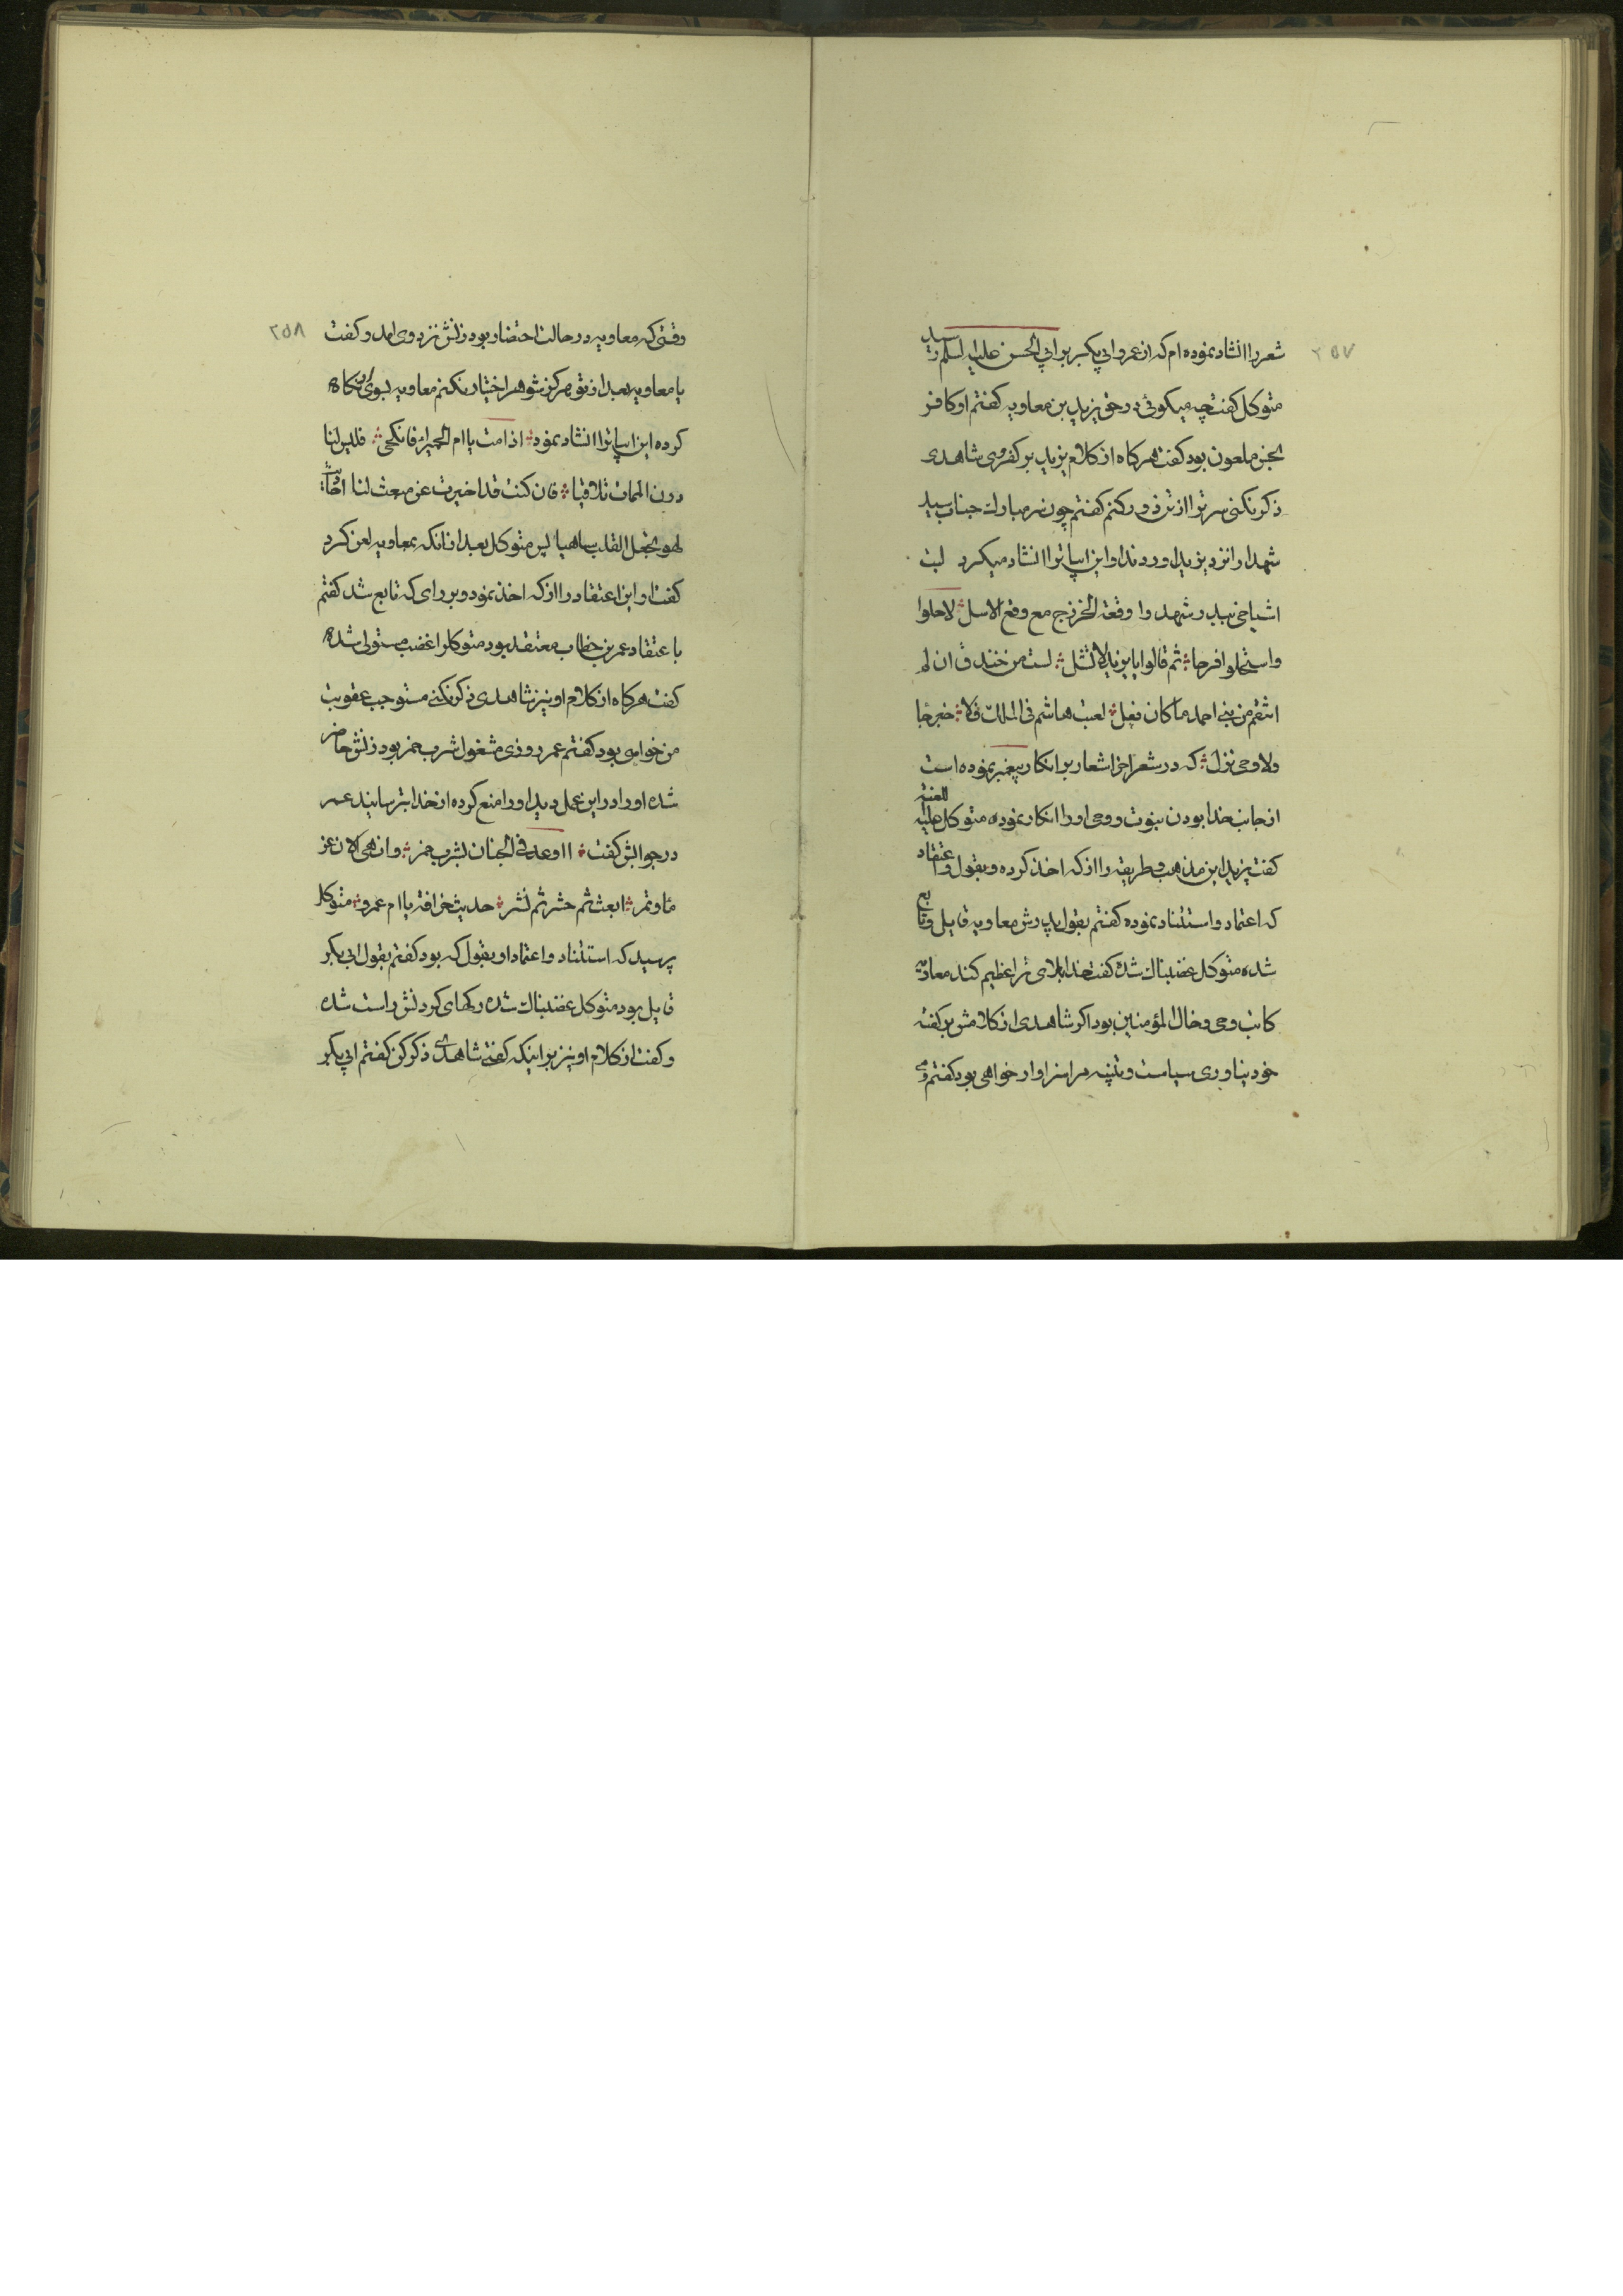 ٢٥٧
شعر را انشاد نموده ام که از عمرو ابی بکر بر ابی الحسن علیه السلم رسید
متوکل کفت چه میکوئی در حق یزید بن معاویه کفتم او کافر
ملعون بود کفت هرکاه از کلام یزید بر کفر وی شاهدی
ذکر نکنی سر ترا از تن دور کنم کفتم چون سر مبارک جناب سید
شهدا را نزد یزید اوردند او این ابیاترا انشاد میکرد لیت
اشیاخی ببدر شهدوا وقعة الخزرج مع وقع الاسل لاهلوا
واستهلوا فرحا ثم قالوا یا یزید لا تشل لست من خندف ان لم
انتقم من بنی احمد ما کان فعل لعبت هاشم فی الملک فلا خبر جا
ولا وحی نزل که در شعر اخر اشعار بر انکار پیغمبر نموده است
از جانب خدا بودن نبوت و وحی او را انکار نموده متوکل علیه اللعنه
کفت یزید این مذهب و طریقه را از که اخذ کرده و بقول و اعتقاد
که اعتماد و استناد نموده کفتم بقول پدرش معاویه قایل و تابع
شده متوکل غضبناک شده کفت خدا بلای ترا عظیم کند معاویه
کاتب وحی و خال المؤمنین بود اکر شاهدی از کلامش بر کفته
خود نیاوری سیاست و تنبیه مرا سزاوار خواهی بود کفتم
٢٥٨
وقتی که معاویه در حالت احتضار بود زنش نزد وی امد و کفت
یا معاویه بعد از تو هرکز شوهر اختیار نکنم معاویه بسوی نکاه
کرده این ابیاترا انشاد نمود اذا مت یا ام الحمیرا فانکحی فلیس لنا
دون الممات تلاقیا فان کنت قد اخبرت عن مبعث لنا
لهو یجعل القلب ساهیا پس متوکل بعد از انکه بمعاویه لعن کرد
کفت او این اعتقاد را از که اخذ نمود و بر رای که تابع شد کفتم
با عتقاد عمر بن خطاب معتقد بود متوکل را غضب مستولی شده
کفت هرکاه از کلام او نیز شاهدی ذکر نکنی مستوجب عقوبت
من خواهی بود کفتم عمر روزی مشغول شرب خمر بود زنش حاضر
شده او را در این عمل دید او را منع کرده از خدا بترسانید عمر
در جوابش کفت ااوعد فی الجنان بشرب خمر وانهی الان عن
ماء وتمر ابعث ثم حشر ثم نشر حدیث خرافة یا ام عمرو متوکل
پرسید که استناد و اعتماد او بقول که بود کفتم بقول ابی بکر
قایل بود متوکل غضبناک شده رکهای کردنش راست شده
و کفت از کلام او نیز بر اینکه کفتی شاهدی ذکر کن کفتم ابی بکر